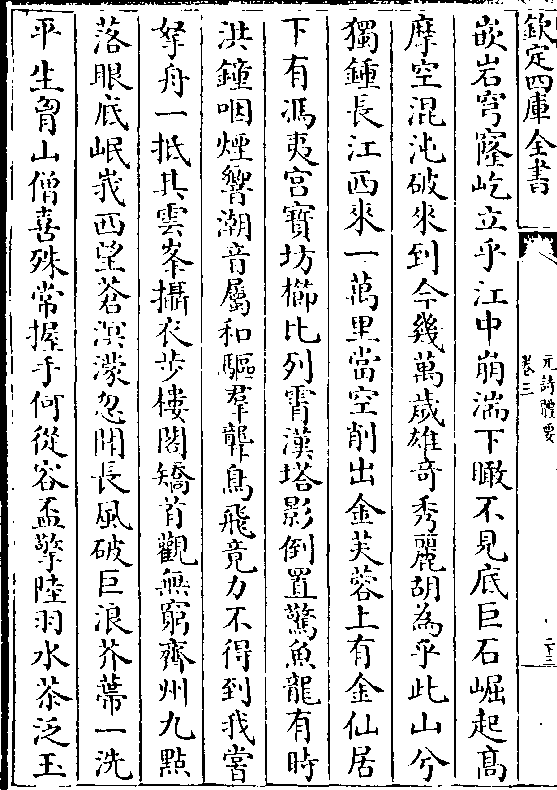 欽定四庫全書
元詩體要
卷三
二十三
嵌岩穹窿屹立乎江中崩湍下瞰不見底巨石崛起高
摩空混沌破來到今幾萬歲雄竒秀麗胡為乎此山兮
獨鍾長江西來一萬里當空削出金芙蓉上有金仙居
下有馮夷宫寳坊櫛比列霄漢塔影倒置驚魚龍有時
洪鐘咽煙響潮音屬和驅羣聾鳥飛竟力不得到我嘗
拏舟一抵其雲峯攝衣步樓閣矯首觀無窮齊州九點
落眼底岷峩西望蒼溟濛忽開長風破巨浪芥蔕一洗
平生胷山僧喜殊常握手何從容盃擎陸羽水茶泛玉